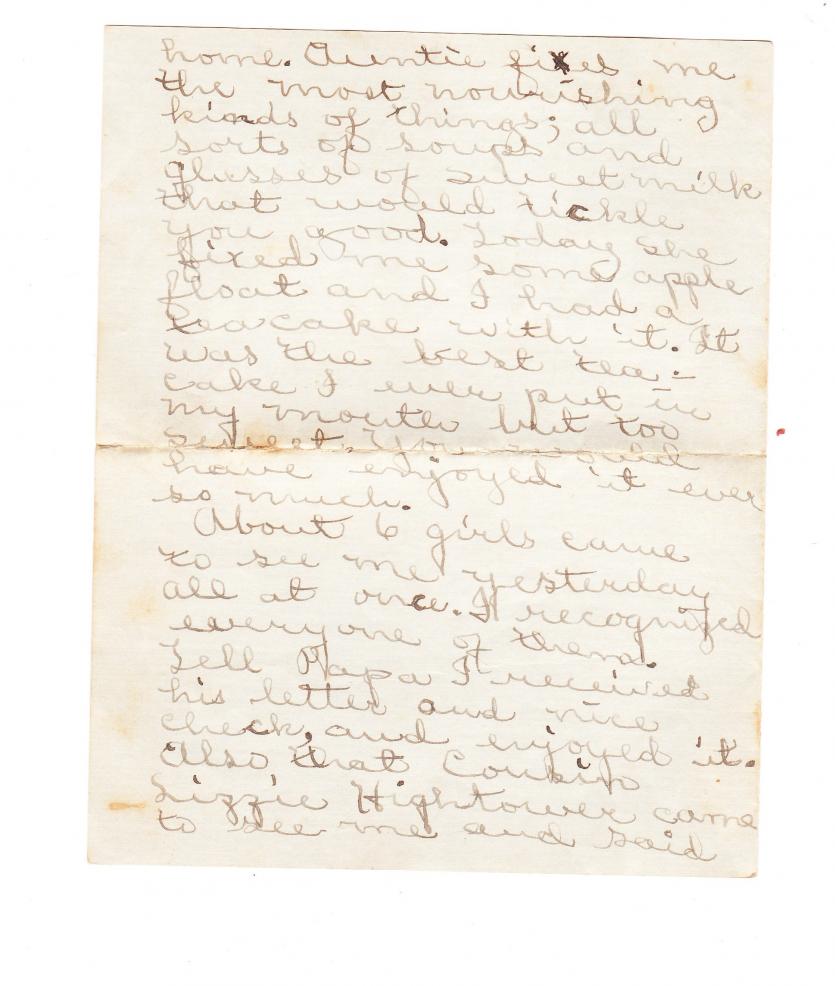 home. Auntie fixes me
the most nourishing
kinds of things; all
sorts of soups and
glasses of sweet milk
that would tickle
you good. Today she
fixed me some apple
float and I had a
tea cake with it. It
was the best tea-
cake I ever put in
my mouth but too
sweet. You would
have enjoyed it ever
so much.
About 6 girls came
to see me yesterday
all at once. I recognized
everyone of them.
Tell Papa I received
his letter and nice
check, and enjoyed it.
Also, that Cousin
Lizzie Hightower came
to see me and said